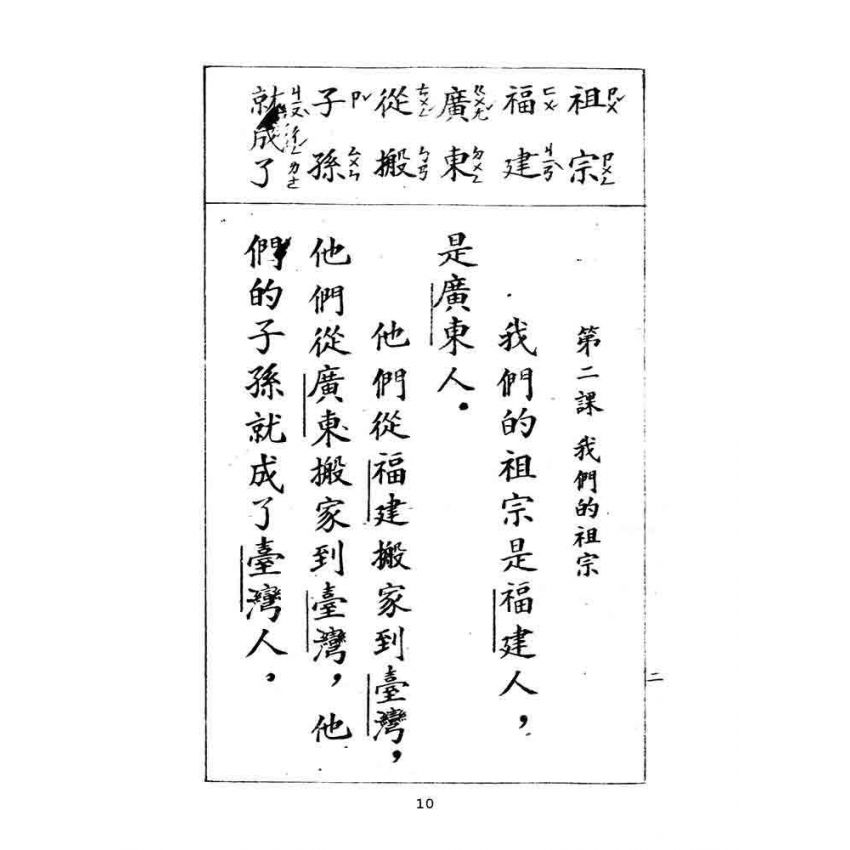 祖ㄗㄨˇ宗ㄗㄨㄥ
福ㄈㄨˊ建ㄐㄧㄢˋ
廣ㄍㄨㄤˇ東ㄉㄨㄥ
從ㄘㄨㄥˊ搬ㄅㄢ
子ㄗˇ孫ㄙㄨㄣ
就ㄐㄧㄡˋ成ㄔㄥˊ了ㄌㄜ
第二課 我們的祖宗
我們的祖宗是福建人，
是廣東人．
他們從福建搬家到臺灣，
他們從廣東搬家到臺灣，他
們的子孫就成了臺灣人，
二
10